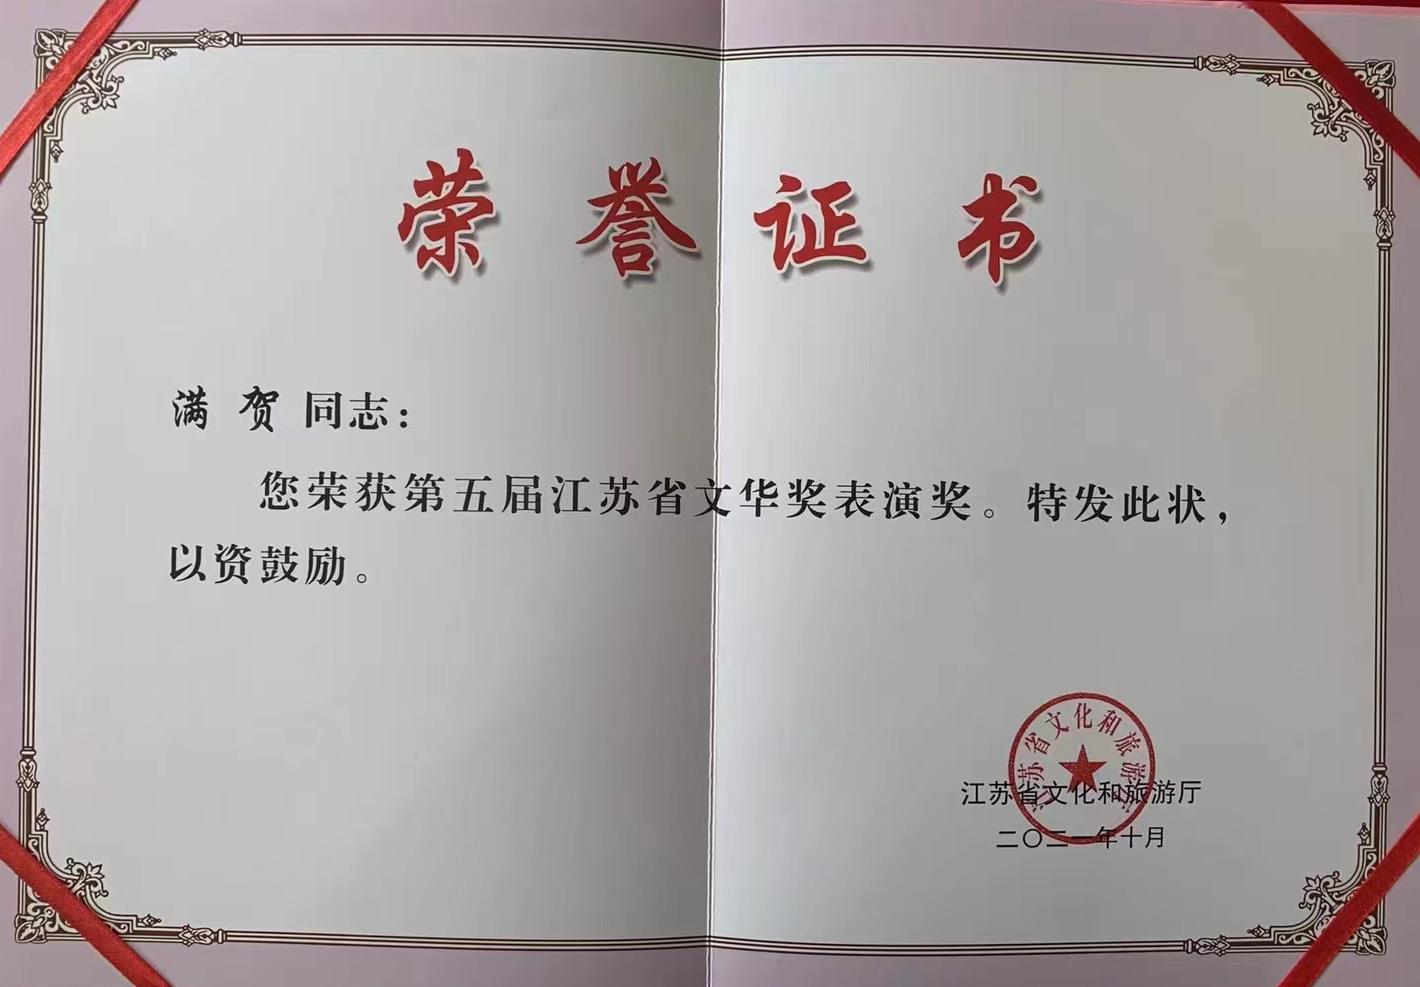 荣誉证书
满贺同志：
您荣获第五届江苏省文华奖表演奖。特发此状，
以资鼓励。
江苏省文化和旅游厅
江苏省文化和旅游厅
二〇二一年十月